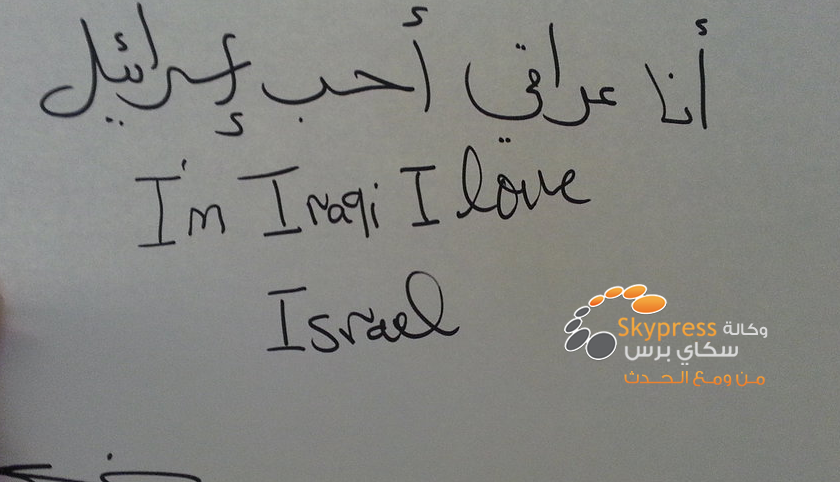 أنا عراقي أحب إسرائيل
I'm Iraqi I love
Israel
Skypress وكالة
سكاي برس
من ومع الحدث